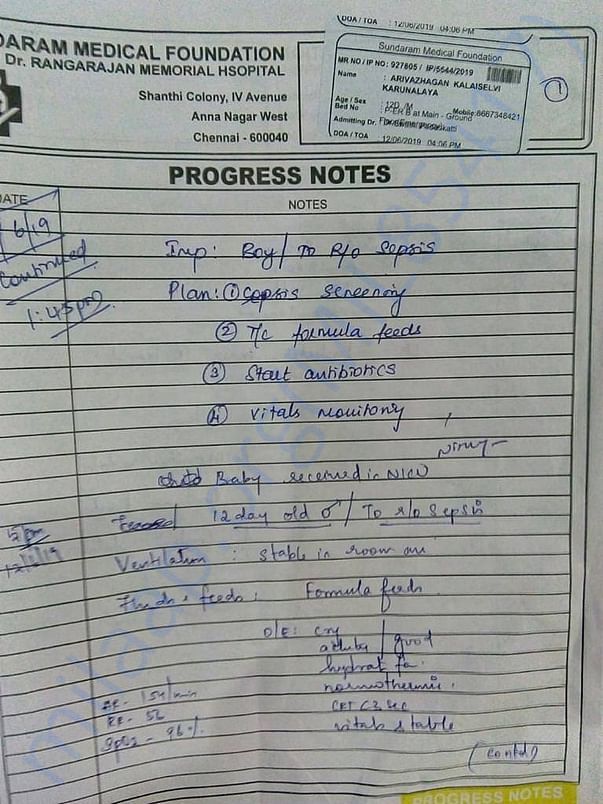 DOA / TOA : 12/06/2019 04:06 PM
DARAM MEDICAL FOUNDATION
Dr. RANGARAJAN MEMORIAL HSOPITAL
Shanthi Colony, IV Avenue
Anna Nagar West
Chennai - 600040
Sundaram Medical Foundation
MR NO / IP NO: 927805 / IP/5544/2019
Name : ARIVAZHAGAN KALAISELVI
KARUNALAYA
Age / Sex : 12D /M
Bed No : P-ER B at Main - Ground Mobile:8667348421
Admitting Dr.
DOA / TOA : 12/06/2019 04:06 PM
1
PROGRESS NOTES
DATE
NOTES
6/19
Continued
1:45pm
Imp: Boy / To R/o Sepsis
Plan: ① Sepsis screening
② T/c formula feeds
③ Start antibiotics
④ Vitals monitoring
Baby received in NICU
5pm
12/6/19
12 day old ♂ / To r/o Sepsis
Ventilation : Stable in room air
Fluids & feeds : Formula feeds
O/E: cry
activity / good
hydrat fa.
normothermic.
CRT <3 sec
vitals stable
HR - 154/min
RR - 52
SpO2 - 96%
(contd)
PROGRESS NOTES